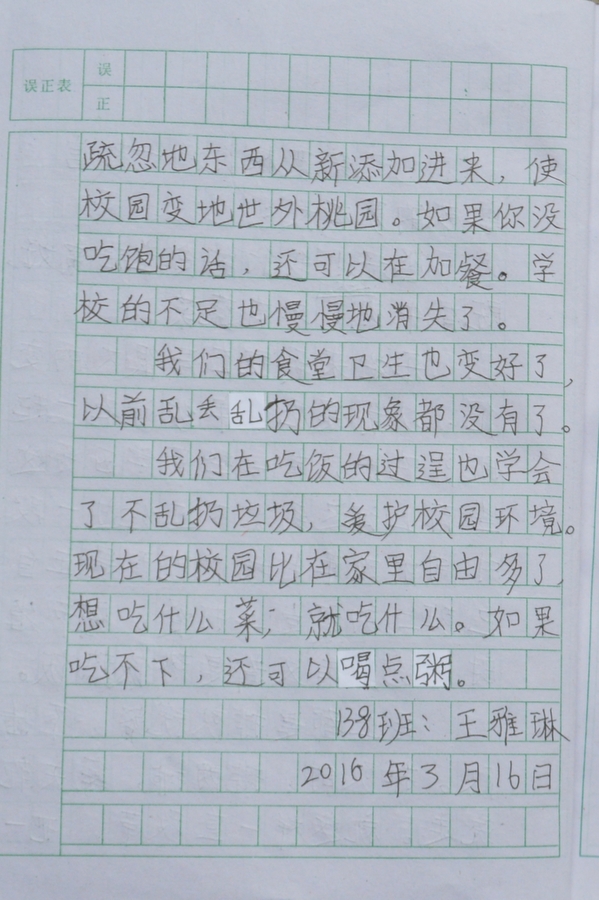 误正表
误
正
疏忽地东西从新添加进来，使
校园变地世外桃园。如果你没
吃饱的话，还可以在加餐。学
校的不足也慢慢地消失了。
我们的食堂卫生也变好了，
以前乱丢乱扔的现象都没有了。
我们在吃饭的过逞也学会
了不乱扔垃圾，爱护校园环境。
现在的校园比在家里自由多了，
想吃什么菜；就吃什么。如果
吃不下，还可以喝点粥。
138班：王雅琳
2016年3月16日